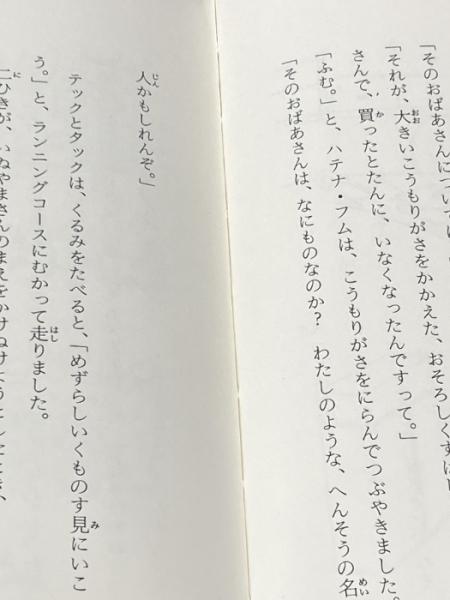 「そのおばあさんについては
「それが、大きいこうもりがさをかかえた、おそろしくすばし
さんで、買ったとたんに、いなくなったんですって。」
「ふむ。」と、ハテナ・フムは、こうもりがさをにらんでつぶやきました。
「そのおばあさんは、なにものなのか? わたしのような、へんそうの名
人かもしれんぞ。」
テックとタックは、くるみをたべると、「めずらしいくものす見にいこ
う。」と、ランニングコースにむかって走りました。
二ひきが、いぬやまさんのまえをかけぬけようとしたとき、